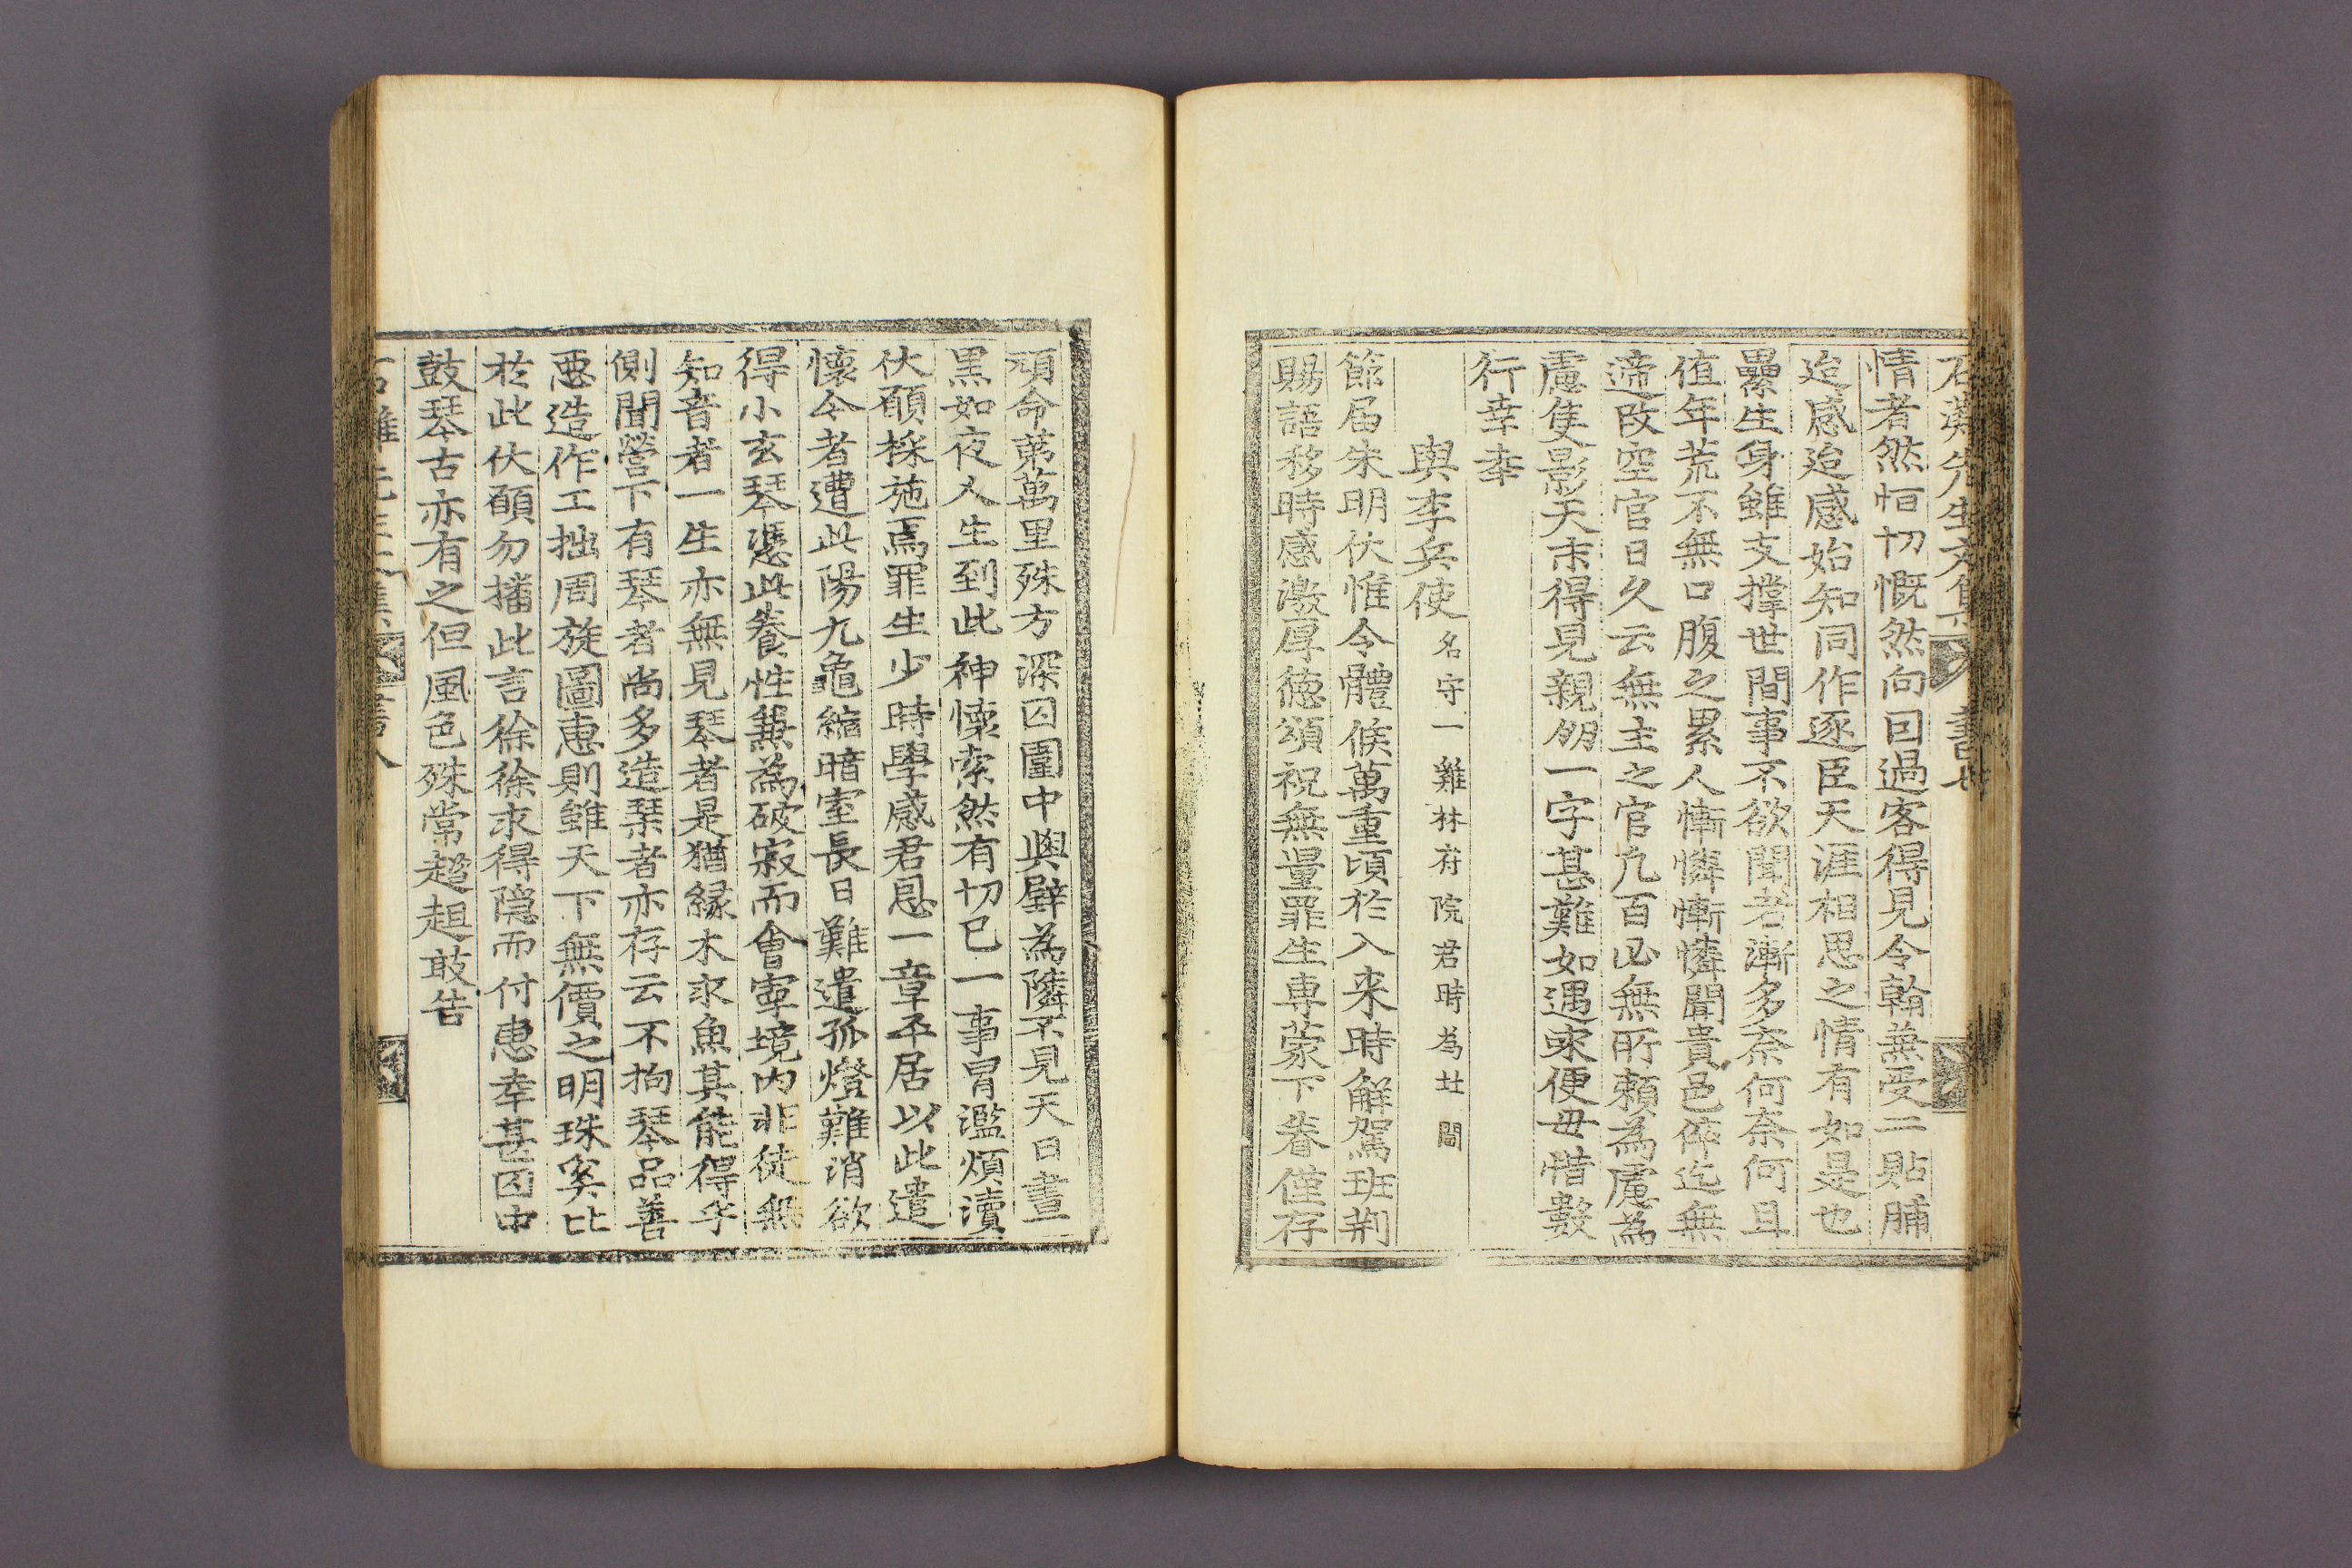 情者然恒切慨然向回過客得見令翰兼受二貼脯
迨感迨感始知同作逐臣天涯相思之情有如是也
纍生身雖支撑世間事不欲聞者漸多奈何奈何且
值年荒不無口腹之累人慚憐慚憐聞貴邑倅迄無
適改空官日久云無主之官凢百必無所賴為慮為
慮隻影天末得見親朋一字甚難如遇來便毋惜數
行幸幸
與李兵使 名守一 雞林府院君時為北閫
節届朱明伏惟令體候萬重頃於入来時解駕班荆
賜語移時感激厚德頌祝無量罪生專蒙下眷僅存
頑命第萬里殊方深囚圍中與壁為隣不見天日晝
黒如夜人生到此神懷索然有切已一事冒濫煩瀆
伏願採施焉罪生少時學感君恩一章平居以此遣
懷今者遭此陽九龜縮暗室長日難遣孤燈難消欲
得小玄琴憑此養性兼為破寂而會寧境内非徒無
知音者一生亦無見琴者是猶縁木求魚其能得乎
側聞營下有琴者尚多造琹者亦存云不拘琴品善
惡造作工拙周旋圖惠則雖天下無價之明珠奚比
於此伏願勿播此言徐徐求得隠而付惠幸甚囚中
鼓琴古亦有之但風色殊常趦趄敢告